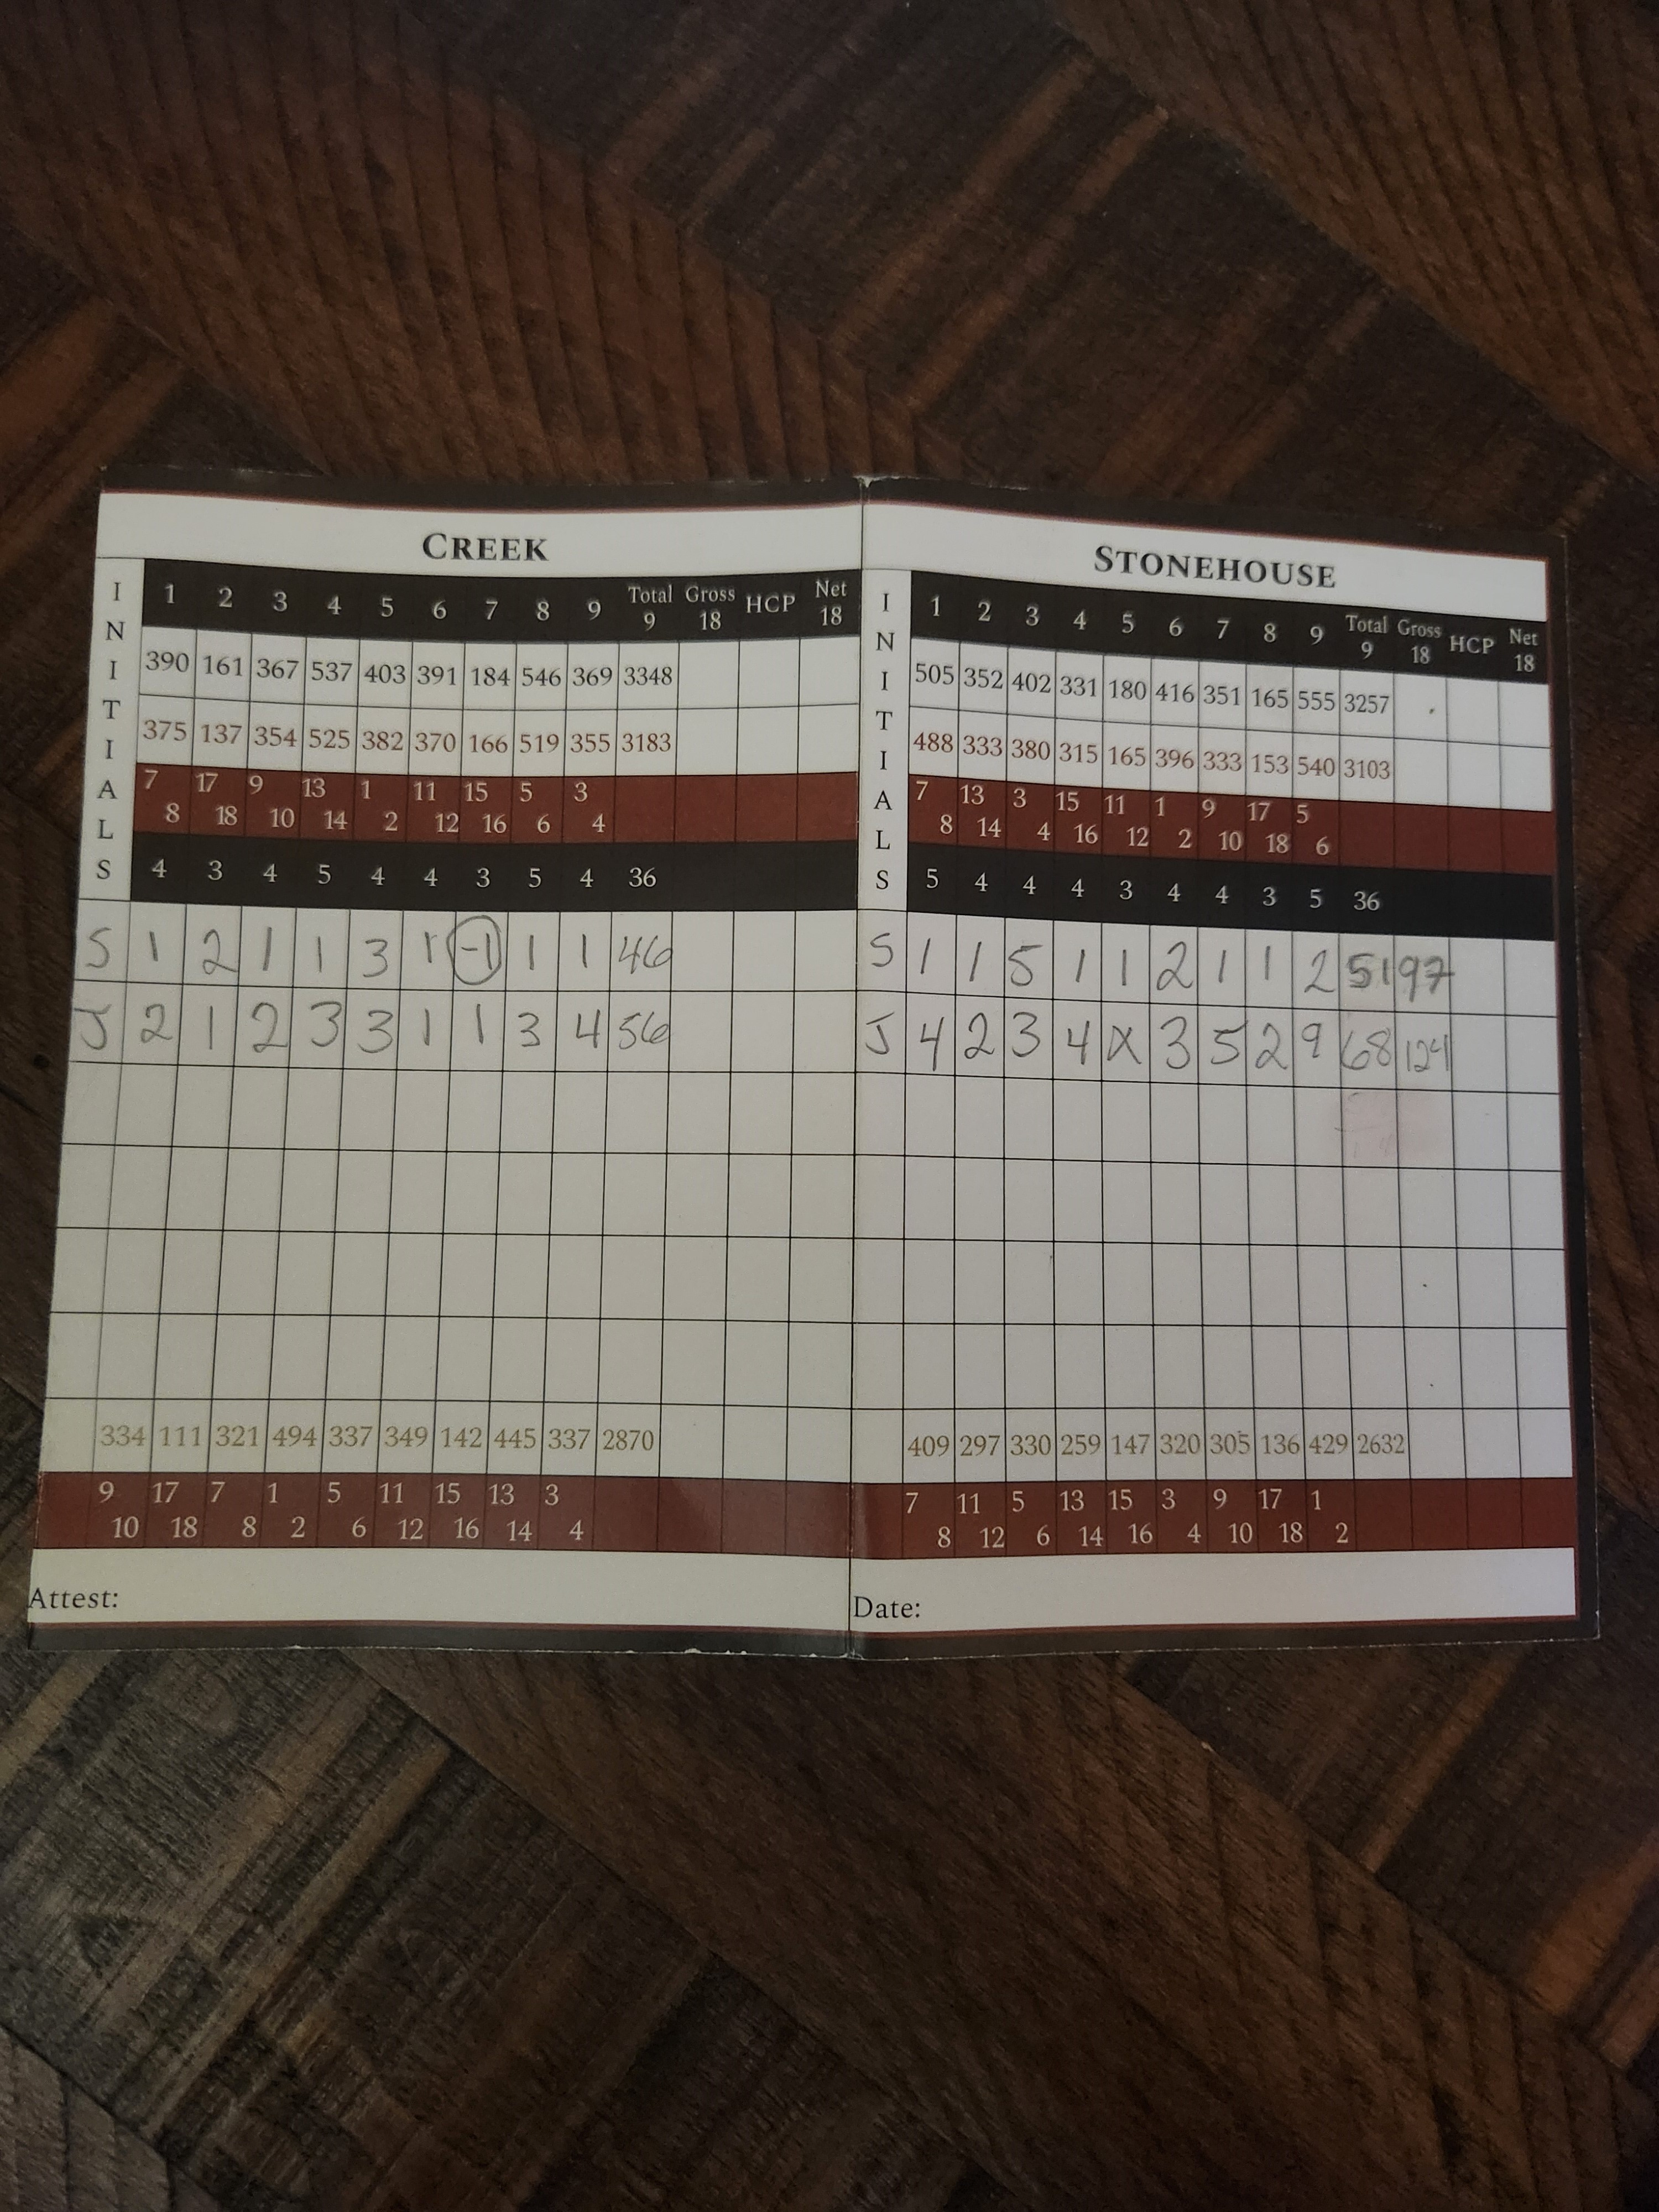 CREEK
INITIALS 1 2 3 4 5 6 7 8 9 Total 9 Gross 18 HCP Net 18
390 161 367 537 403 391 184 546 369 3348
375 137 354 525 382 370 166 519 355 3183
7 17 9 13 1 11 15 5 3
8 18 10 14 2 12 16 6 4
4 3 4 5 4 4 3 5 4 36
S 1 2 1 1 3 1 -1 1 1 46
J 2 1 2 3 3 1 1 3 4 56
334 111 321 494 337 349 142 445 337 2870
9 17 7 1 5 11 15 13 3
10 18 8 2 6 12 16 14 4
Attest:
STONEHOUSE
INITIALS 1 2 3 4 5 6 7 8 9 Total 9 Gross 18 HCP Net 18
505 352 402 331 180 416 351 165 555 3257
488 333 380 315 165 396 333 153 540 3103
7 13 3 15 11 1 9 17 5
8 14 4 16 12 2 10 18 6
5 4 4 4 3 4 4 3 5 36
S 1 1 5 1 1 2 1 1 2 51 97
J 4 2 3 4 X 3 5 2 9 68 124
409 297 330 259 147 320 305 136 429 2632
7 11 5 13 15 3 9 17 1
8 12 6 14 16 4 10 18 2
Date: